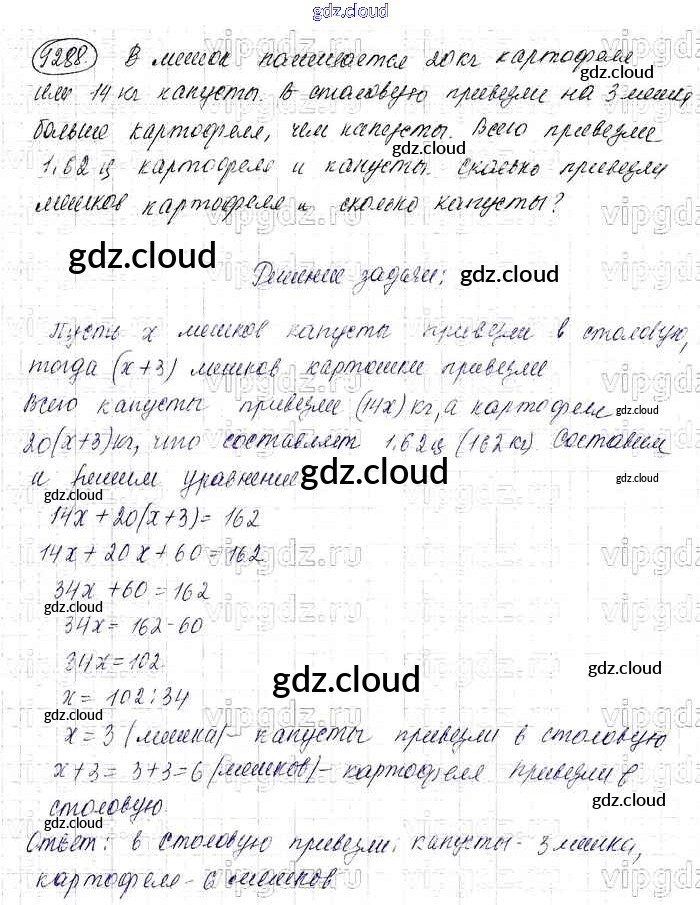 gdz.cloud
9288 В мешок помещается 20 кг картофеля
или 14 кг капусты. В столовую привезли на 3 мешка
больше картофеля, чем капусты. Всего привезли
1,62 ц картофеля и капусты. Сколько привезли
мешков картофеля и сколько капусты?
gdz.cloud
Решение задачи:
gdz.cloud
Пусть x мешков капусты привезли в столовую,
тогда (x+3) мешков картошки привезли
Всего капусты привезли (14x) кг, а картофеля
20(x+3) кг, что составляет 1,62 ц (162 кг) Составим
и решим уравнение
gdz.cloud
14x + 20(x+3) = 162
14x + 20x + 60 = 162
34x + 60 = 162
34x = 162-60
34x = 102
x = 102:34
gdz.cloud
x = 3 (мешка) - капусты привезли в столовую
x+3 = 3+3=6 (мешков) - картофеля привезли в
столовую.
Ответ: в столовую привезли: капусты - 3 мешка,
картофеля - 6 мешков